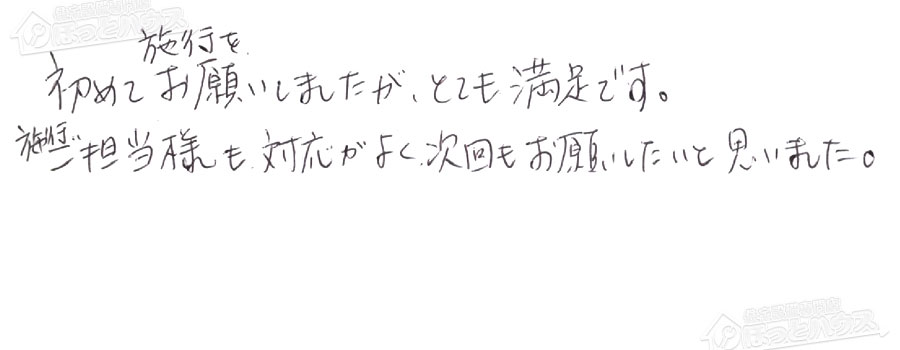 住宅設備専門店
ほっとハウス
施行を
初めてお願いしましたが、とても満足です。
施行
ご担当様も対応がよく次回もお願いしたいと思いました。
住宅設備専門店
ほっとハウス